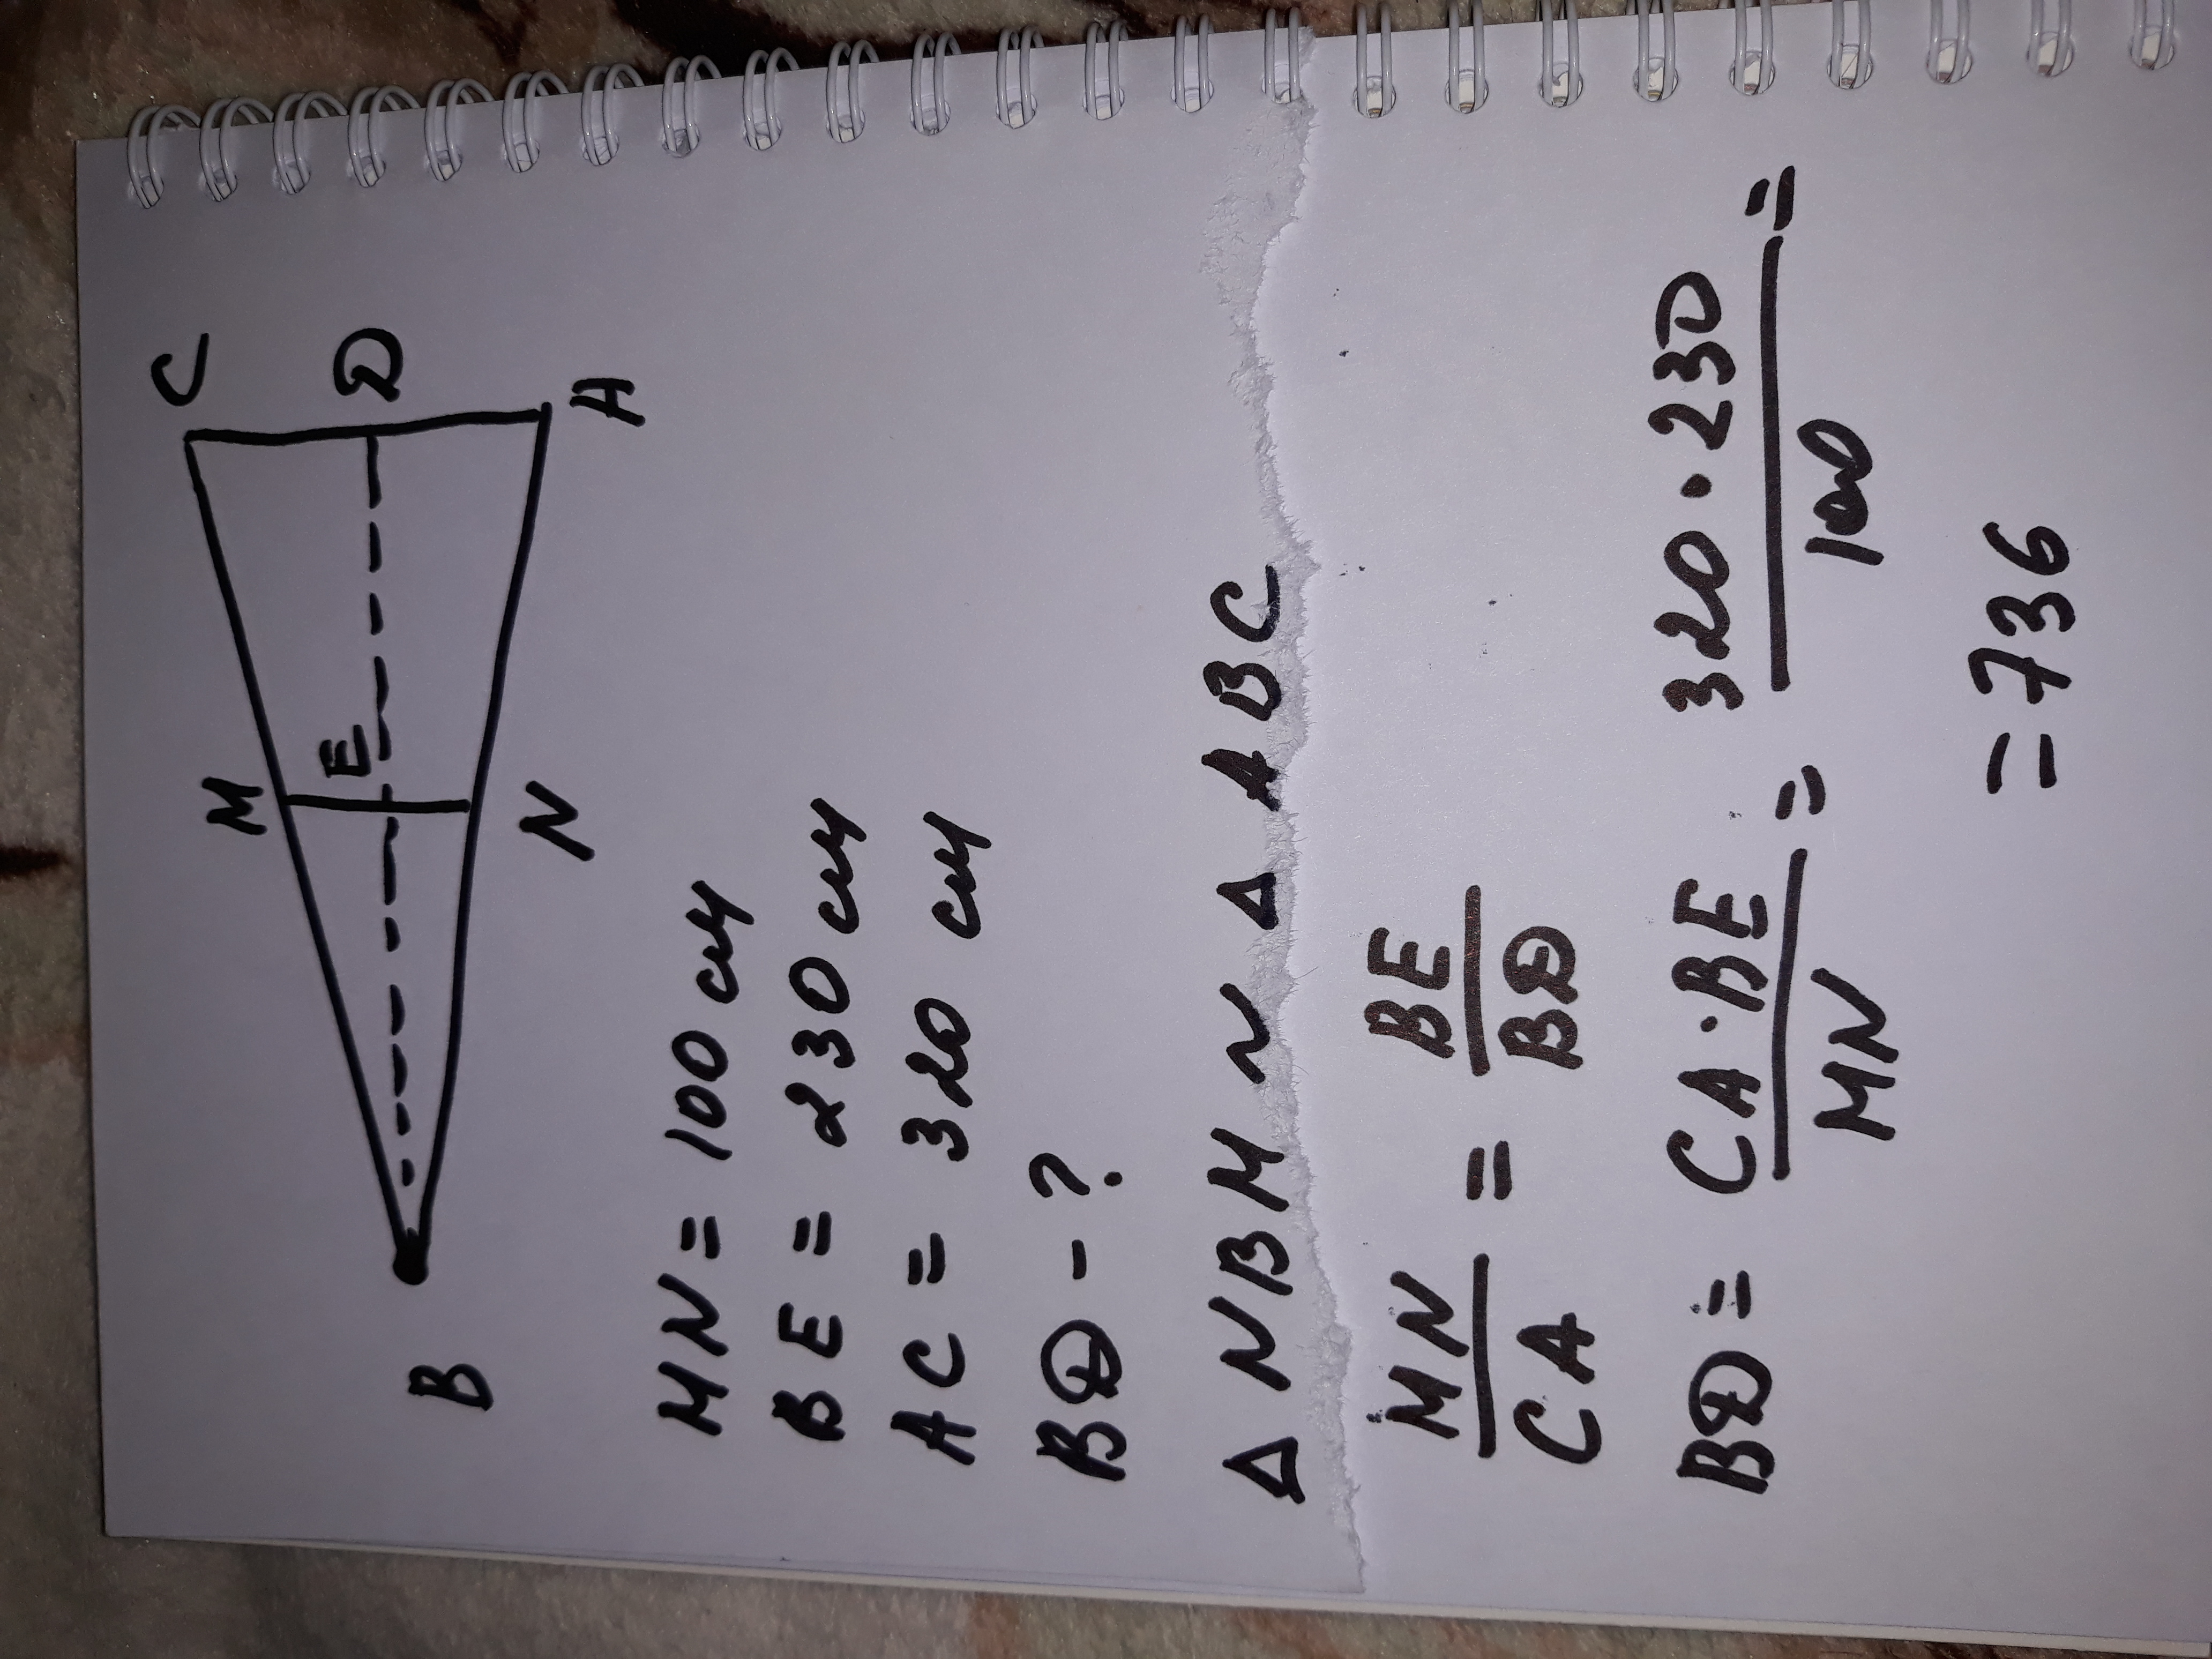 C
M
E
D
B
N
A
MN = 100 см
BE = 230 см
AC = 320 см
BD - ?
△ NBM ~ △ ABC
MN/CA = BE/BD
BD = CA · BE/MN = 320 · 230/100 =
= 736